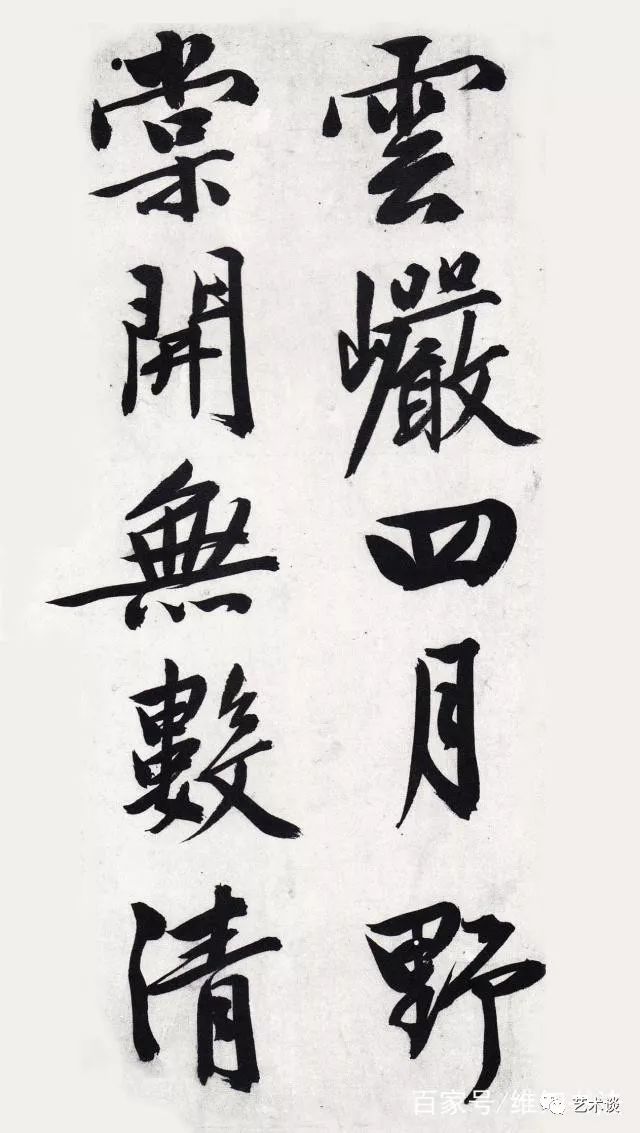 雲巖四月野
棠開無數清
百家号/维
艺术谈